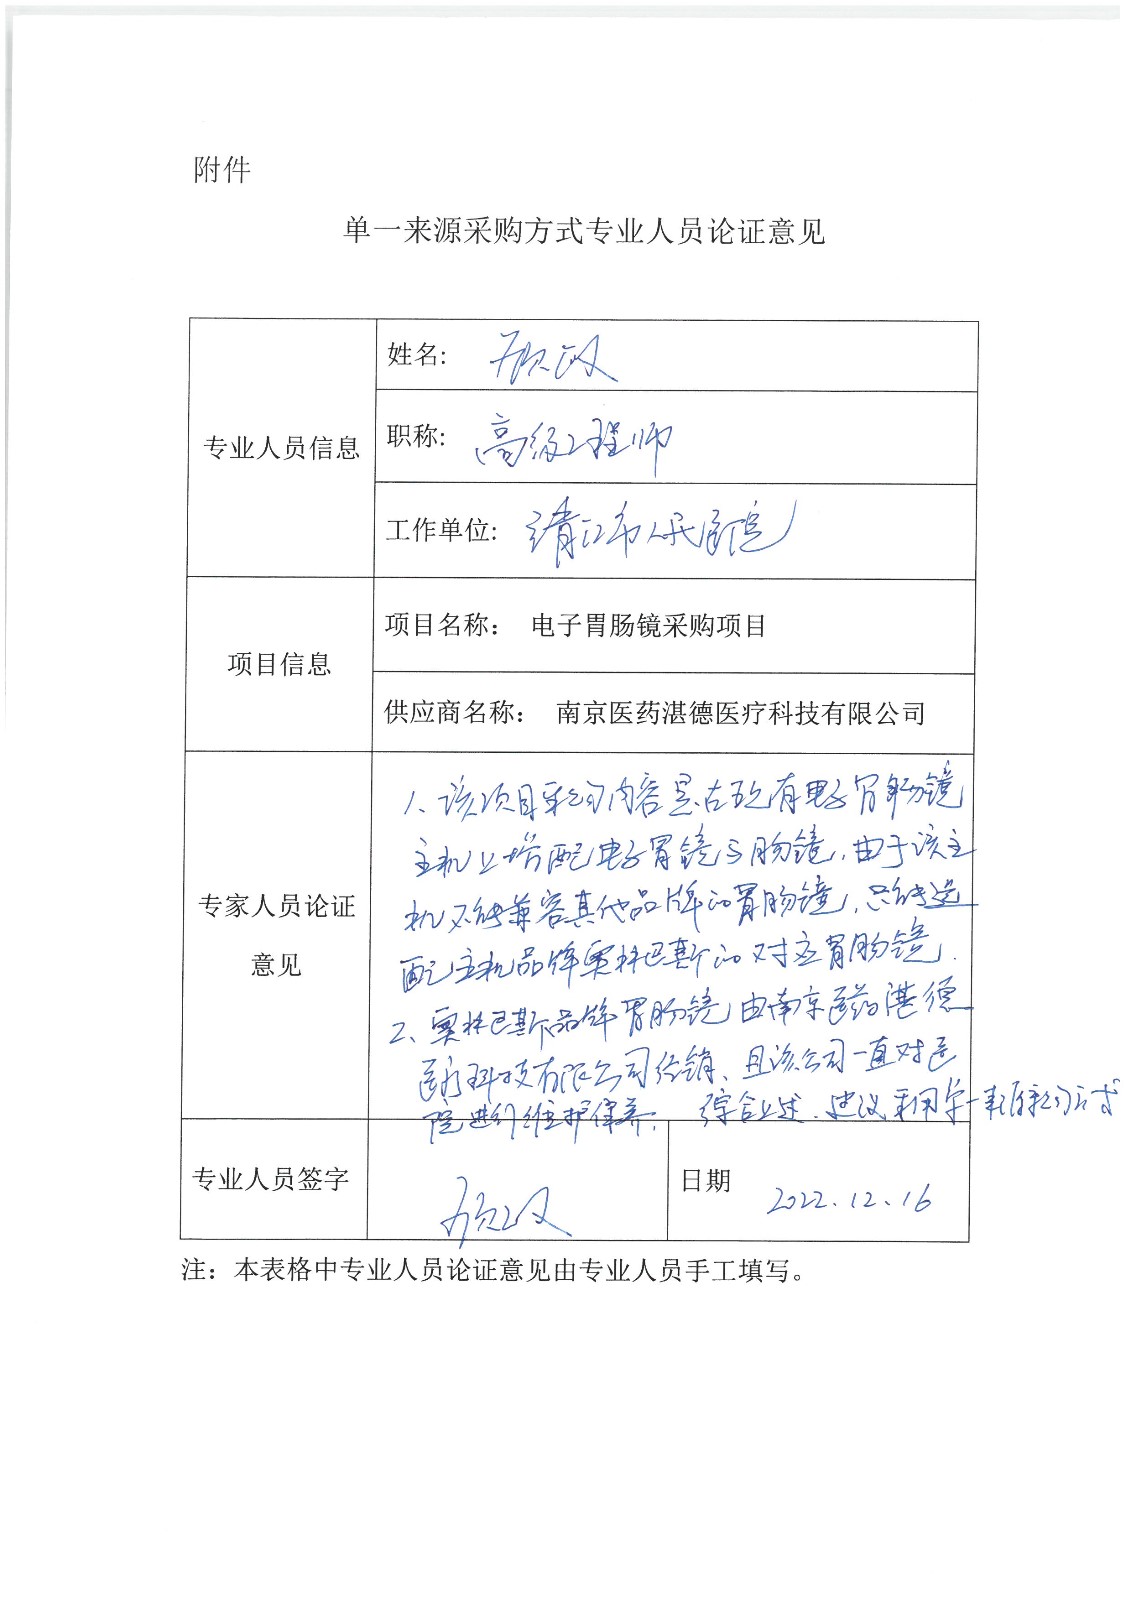 附件
单一来源采购方式专业人员论证意见
专业人员信息
姓名：顾政
职称：高级工程师
工作单位：靖江市人民医院
项目信息
项目名称： 电子胃肠镜采购项目
供应商名称： 南京医药湛德医疗科技有限公司
专家人员论证
意见
1、该项目采购内容是在现有电子胃肠镜
主机上增配电子胃镜与肠镜，由于该主
机不能兼容其他品牌的胃肠镜，只能选
配主机品牌奥林巴斯的对应胃肠镜.
2、奥林巴斯品牌胃肠镜由南京医药湛德
医疗科技有限公司经销、且该公司一直对医
院进行维护保养. 综合上述.建议采用单一来源采购方式
专业人员签字
顾政
日期
2022.12.16
注：本表格中专业人员论证意见由专业人员手工填写。